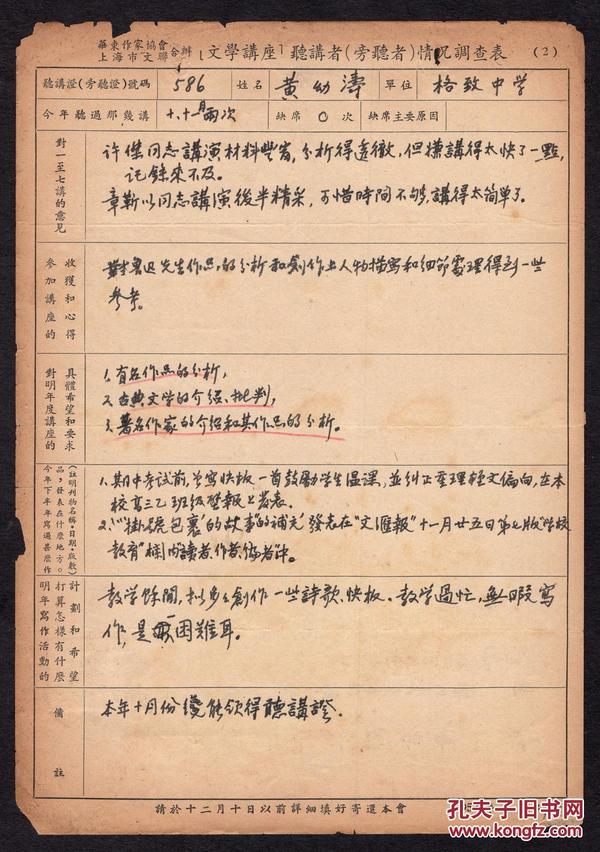 華東作家協會
上海市文聯 合辦「文學講座」聽講者(旁聽者)情況調查表 (2)
聽講證(旁聽證)號碼 586 姓名 黃幼濤 單位 格致中学
今年聽過那幾講 十、十一月兩次 缺席 0 次 缺席主要原因
對一至七講的意見
許傑同志講演材料豐富,分析得透徹,但嫌講得太快了一點,
記錄來不及。
章靳以同志講演後半精采,可惜時間不够,講得太简單了。
參加講座的收獲和心得
對魯迅先生作品的分析和創作上人物描寫和細節處理得到一些
參考。
對明年度講座的具體希望和要求
1.有名作品的分析,
2.古典文学的介紹、批判,
3.著名作家的介紹和其作品的分析。
今年下半年寫過甚麽作品,發表在什麽地方。(註明刊物名稱·日期·版數)
1.期中考試前,曾寫快板一首鼓勵学生温課,並糾正重理輕文偏向,在本
校高三乙班级墾報上发表.
2.“‘掛號包裹’的故事”的補充 發表在“文滙報”十一月廿五日第七版“学校
教育”欄内“讀者、作者、编者”中。
明年寫作活動的打算怎樣有什麽計劃和希望
教学餘閒,擬多多創作一些詩歌、快板。教学過忙,無暇寫
作,是困難耳。
備註
本年十月份纔能領得聽講證.
請於十二月十日以前詳細填好寄還本會
孔夫子旧书网
www.kongfz.com